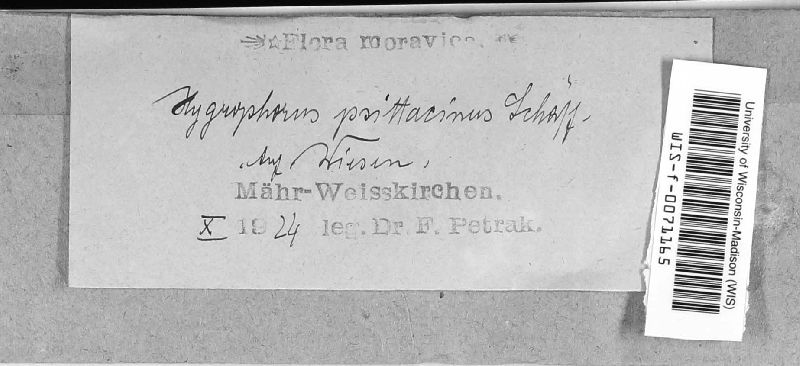 Flora moravica.
Hygrophorus psittacinus Schäff.
Auf Wiesen.
Mähr-Weisskirchen.
X 1924 leg. Dr. F. Petrak.
University of Wisconsin-Madison (WIS)
WIS-f-0071165